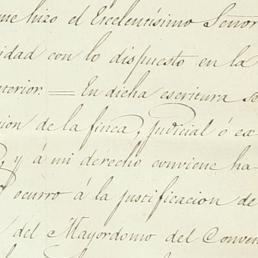 me hizo el Excelentísimo Señor
idad con lo dispuesto en la
nterior. = En dicha escritura se
ion de la finca, judicial ó ex
y á mi derecho conviene ha
ocurro á la justificacion de
del Mayordomo del Conven